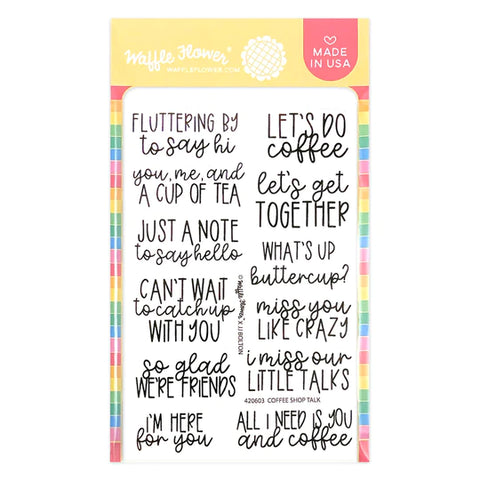 Waffle Flower®
WAFFLEFLOWER.COM
MADE
IN USA
FLUTTERING BY
to say hi
you, me, and
A CUP OF TEA
JUST A NOTE
to say hello
CAN'T WAIT
to catch up
WITH YOU
so glad
WE'RE FRIENDS
I'M HERE
for you
LET'S DO
coffee
let's get
TOGETHER
WHAT'S UP
buttercup?
miss you
LIKE CRAZY
i miss our
LITTLE TALKS
420603 COFFEE SHOP TALK
ALL I NEED IS YOU
and coffee
© Waffle Flower X JJ BOLTON